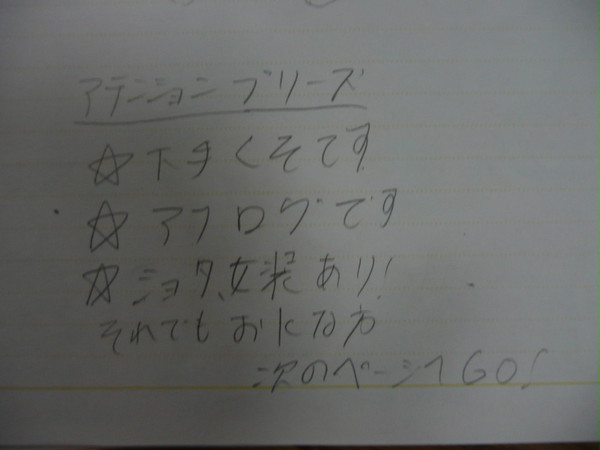 アテンションプリーズ
☆下手くそです
☆アフログです
☆ショタ、女装あり!
それでもおkな方
次のページへGO!